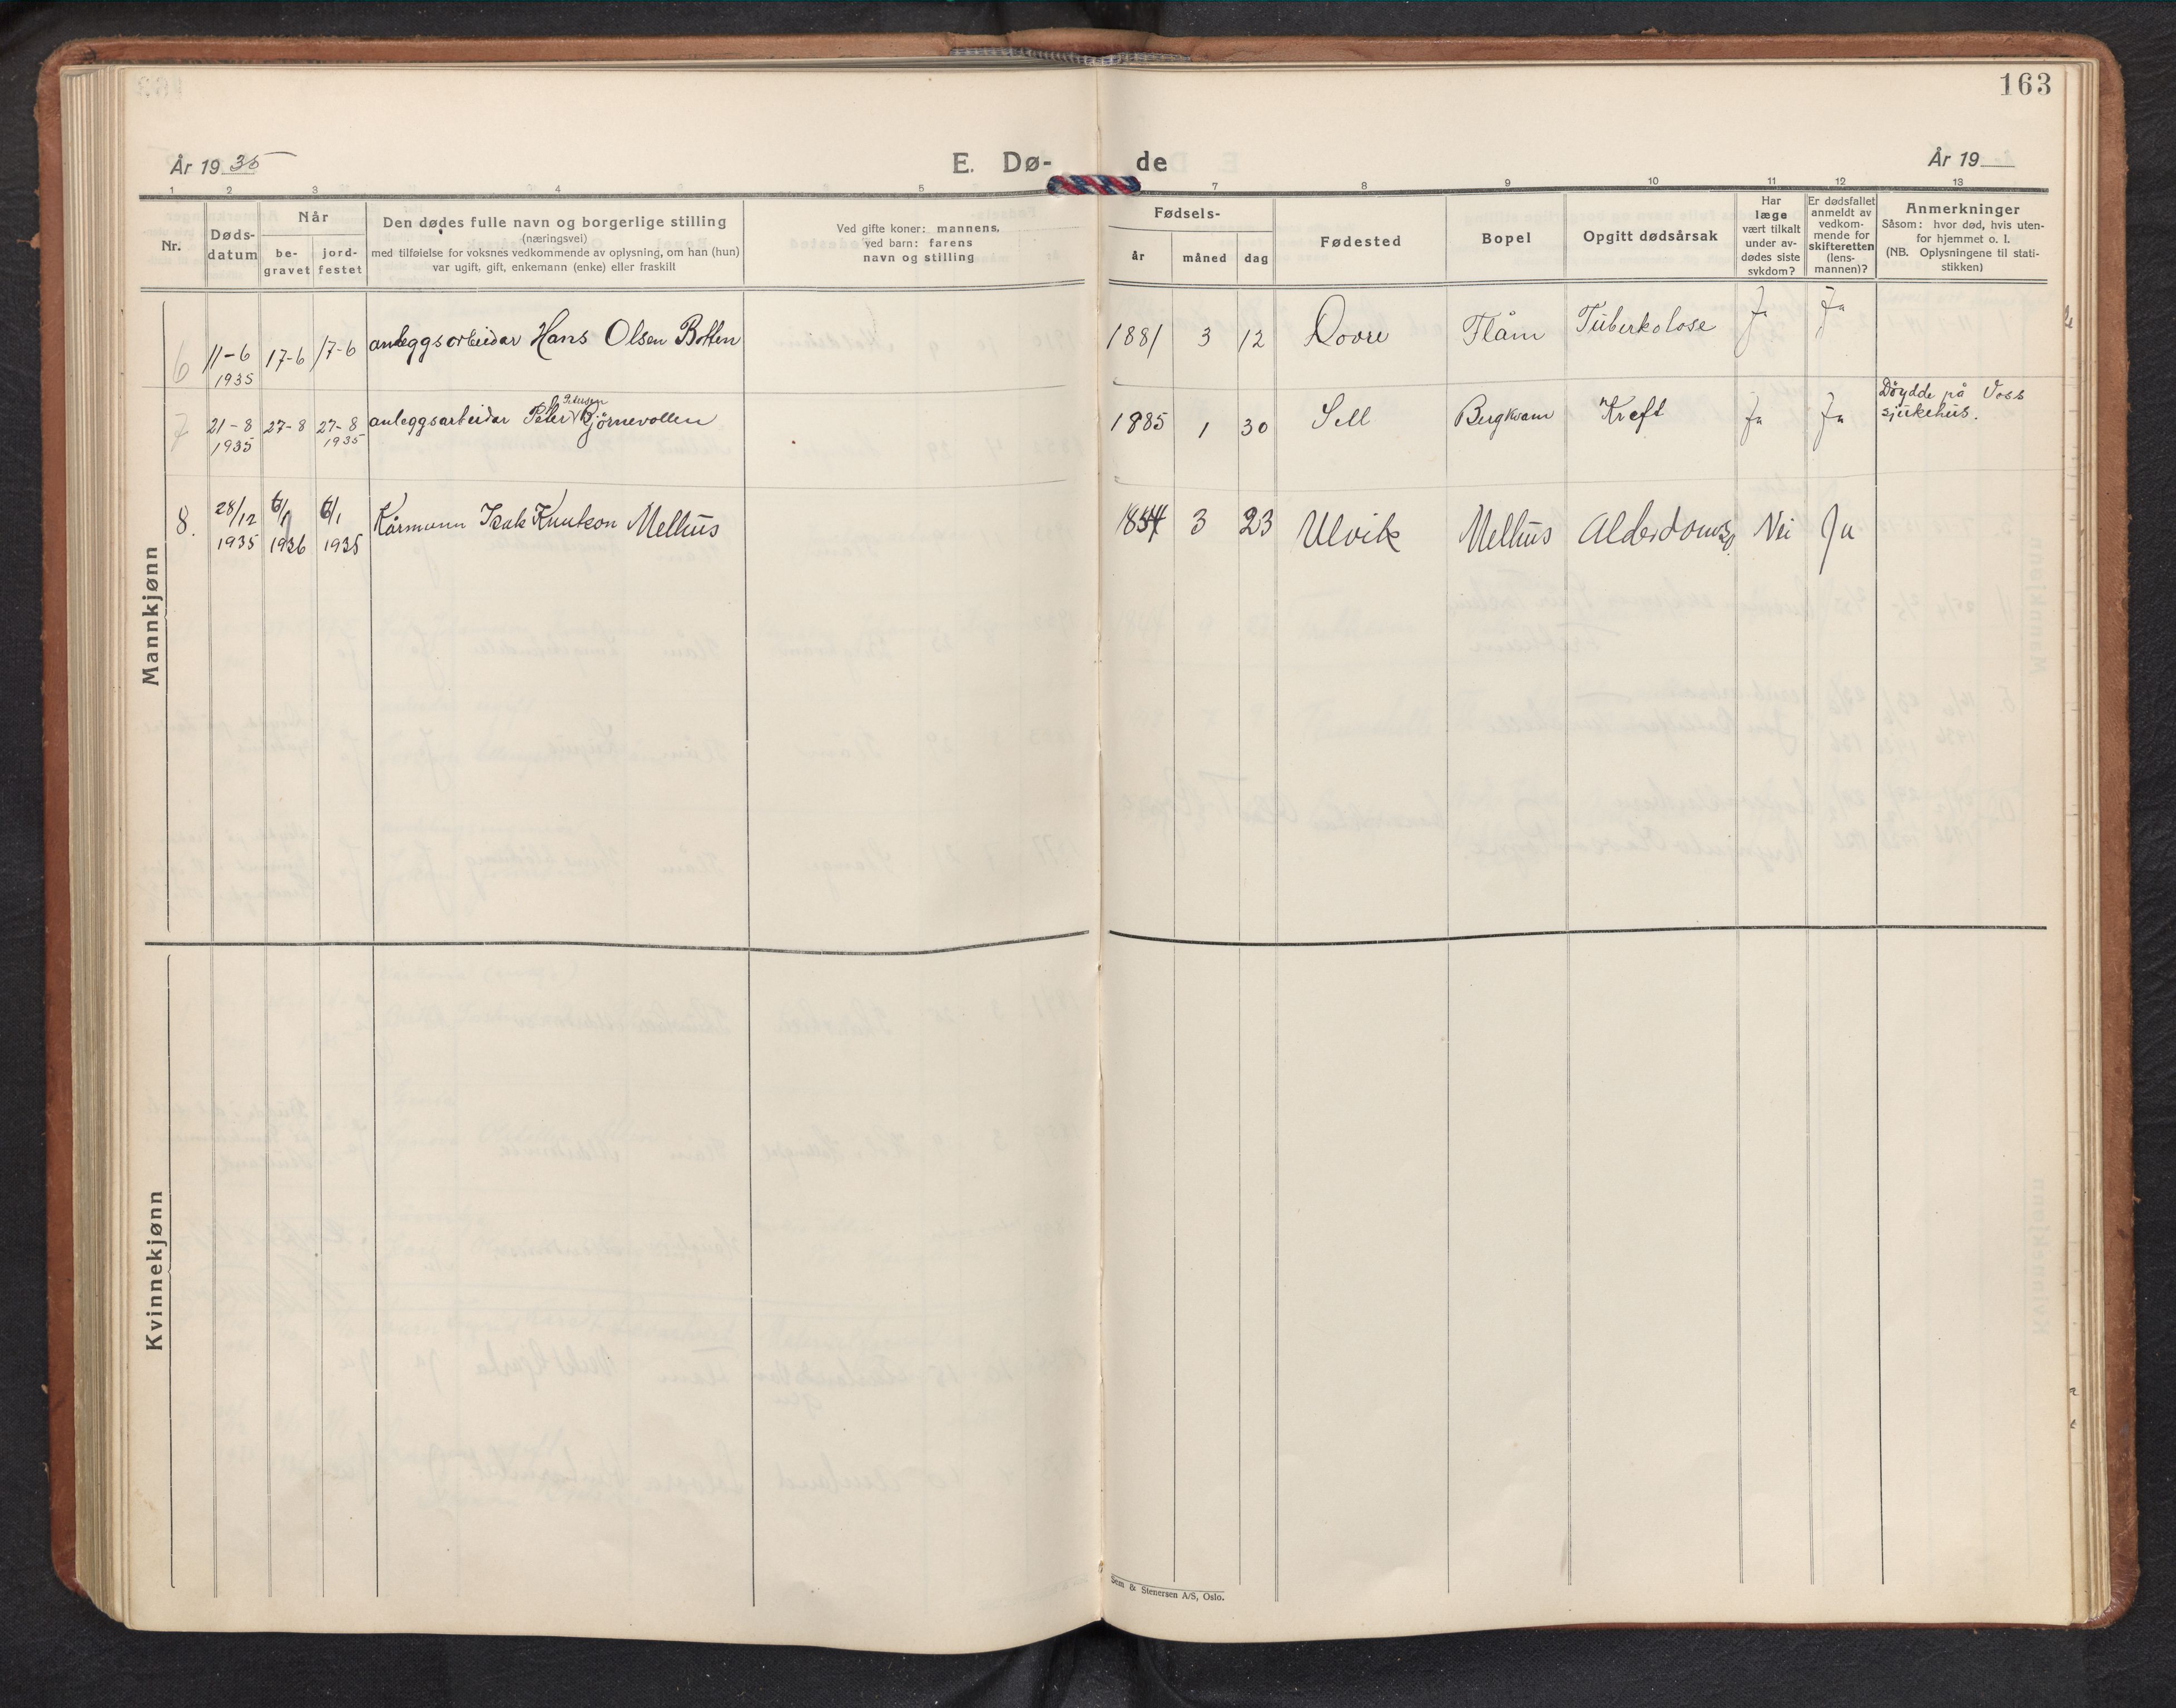 163
År 1935
E. Dø-
de
År 19
1 2 3 4 5 7 8 9 10 11 12 13
Nr.
Døds-
datum
Når
be-
gravet
jord-
festet
Den dødes fulle navn og borgerlige stilling
(næringsvei)
med tilføielse for voksnes vedkommende av oplysning, om han (hun)
var ugift, gift, enkemann (enke) eller fraskilt
Ved gifte koner: mannens,
ved barn: farens
navn og stilling
Fødsels-
år måned dag
Fødested
Bopel
Opgitt dødsårsak
Har
læge
vært tilkalt
under av-
dødes siste
sykdom?
Er dødsfallet
anmeldt av
vedkom-
mende for
skifteretten
(lens-
mannen)?
Anmerkninger
Såsom: hvor død, hvis uten-
for hjemmet o. l.
(NB. Oplysningene til stati-
stikken)
Mannkjønn
6 11-6 17-6 17-6 anleggsarbeidar Hans Olsen Botten 1881 3 12 Dovre Flåm Tuberkolose Ja Ja
1935
7 21-8 27-8 27-8 anleggsarbeidar Peter Petersen Bjørnevollen 1885 1 30 Sell Bergkvam Kreft Ja Ja Døydde på Voss
1935 1935 sjukehus.
8. 28/12 6/1 6/1 Kårmann Isak Knutson Melhus 1854 3 23 Ulvik Melhus Alderdom Nei Ja
1935 1936 1935
Kvinnekjønn
Sem & Stenersen A/S, Oslo.